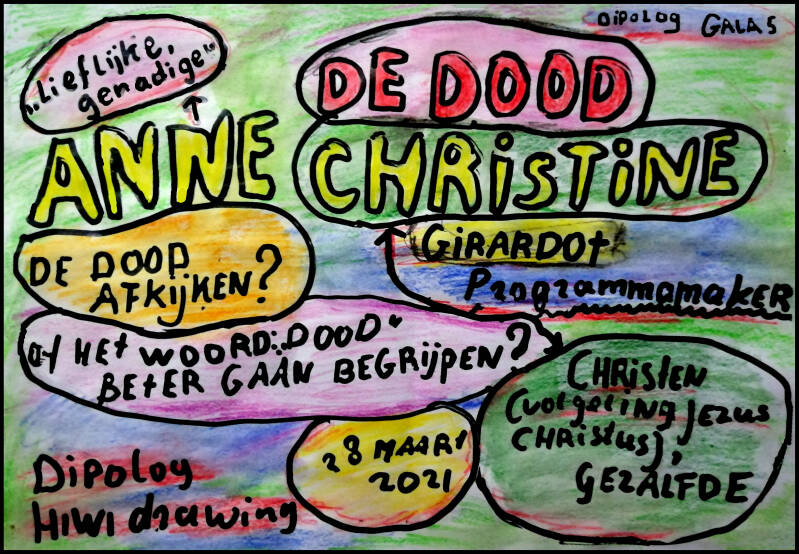 DIPOLOG GALAS
„LIEFLIJKE,
genadige"
DE DOOD
ANNE CHRISTINE
GIRARDOT
Programmamaker
DE DOOD
AFKIJKEN?
OF HET WOORD: „DOOD"
BETER GAAN BEGRIJPEN?
CHRISTEN
(volgeling Jezus
CHRISTUS),
GEZALFDE
28 MAART
2021
DIPOLOG
HIWI drawing